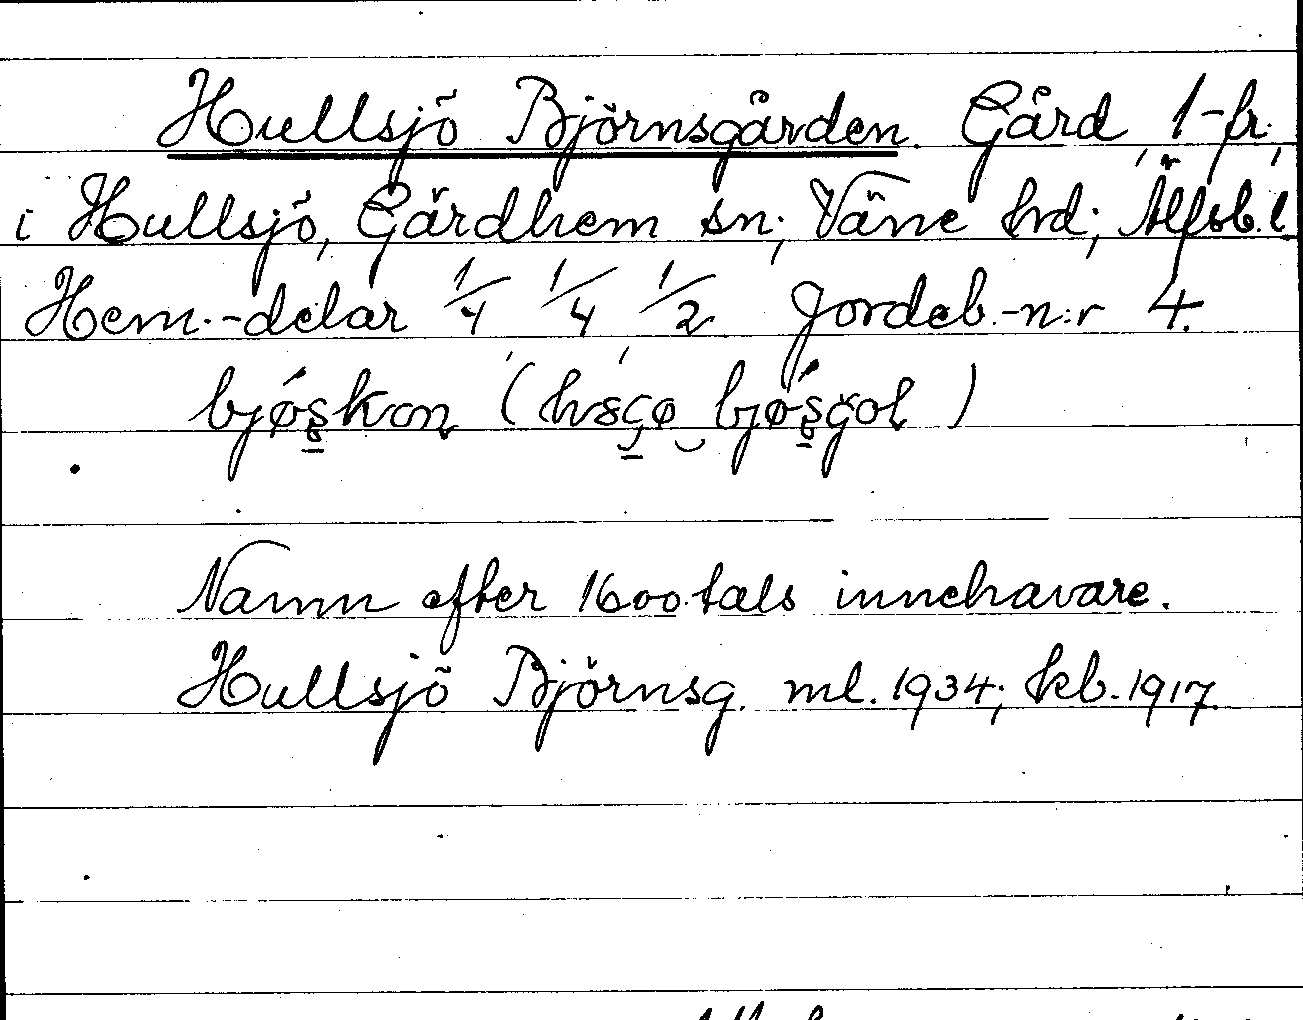 Hullsjö Björnsgården. Gård, 1-fr.
i Hullsjö, Gärdhem sn; Väne hd; Älfsb. l.
Hem.-delar 1/4 1/4 1/2 Jordeb.-n:r 4.
Namn efter 1600 tals innehavare.
Hullsjö Björnsg. ml. 1934; kb. 1917.